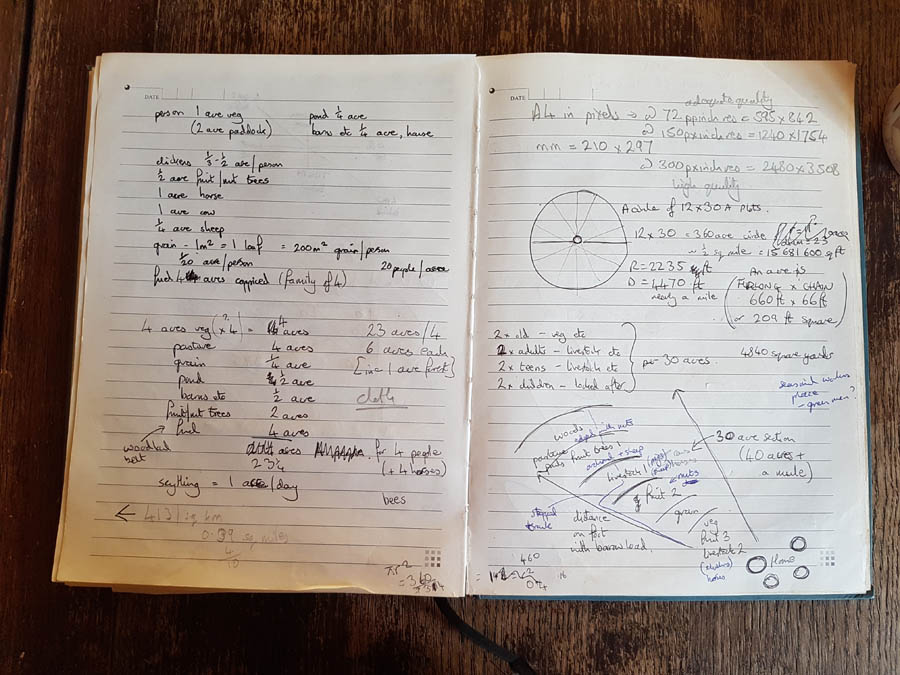 DATE
person 1 acre veg
(2 acre paddock)
pond ¼ acre
barns etc ¼ acre, house
chickens ⅓-½ acre/person
½ acre fruit/nut trees
1 acre horse
1 acre cow
¼ acre sheep
grain - 1m² = 1 loaf = 200m² grain/person
1/20 acre/person
20 people/acre
fuel 4 acres coppiced (family of 4)
4 acres veg (x 4) = 4 acres
23 acres/4
pasture 4 acres
6 acres each
grain ¼ acre
pond ½ acre
barns etc ½ acre
cloth
fruit/nut trees 2 acres
fuel 4 acres
woodland belt
acres for 4 people
23¼
(+4 horses)
scything = 1 acre/day
bees
← 412/sq km
0.39 sq miles
4
10
πr²
= 360
DATE
adequate quality
A4 in pixels → @ 72 ppinch res = 595 x 842
@ 150 pxinch res = 1240 x 1754
mm = 210 x 297
@ 300 pxinch res = 2480 x 3508
high quality
A circle of 12 x 30 A plots.
12 x 30 = 360 acre circle
~ ½ sq mile = 15 681 600 sq ft
R = 2235 ft
D = 4470 ft
nearly a mile
An acre is
FURLONG x CHAIN
660 ft x 66 ft
or 209 ft square
4840 square yards
2 x old - veg etc
2 x adults - livestock etc
2 x teens - livestock etc
2 x children - looked after
per 30 acres.
seasonal workers
- green men?
woods
edged with nuts
pasture
fruit trees 1
orchard + sheep
livestock 1
nuts
fruit 2
grain
veg
fruit 3
livestock 2
30 acre section
(40 acres +
a mule)
distance
on foot
with barrow load.
Home
460